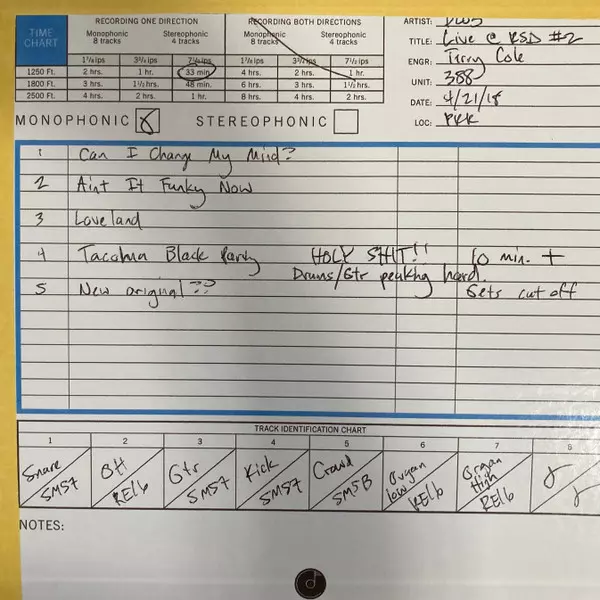 TIME CHART
RECORDING ONE DIRECTION
RECORDING BOTH DIRECTIONS
Monophonic 8 tracks
Stereophonic 4 tracks
Monophonic 8 tracks
Stereophonic 4 tracks
1⅞ ips 3¾ ips 7½ ips 1⅞ ips 3¾ ips 7½ ips
1250 Ft. 2 hrs. 1 hr. 33 min. 4 hrs. 2 hrs. 1 hr.
1800 Ft. 3 hrs. 1½ hrs. 48 min. 6 hrs. 3 hrs. 1½ hrs.
2500 Ft. 4 hrs. 2 hrs. 1 hr. 8 hrs. 4 hrs. 2 hrs.
ARTIST:
TITLE: Live @ RSD #2
ENGR: Terry Cole
UNIT: 388
DATE: 4/21/18
LOC:
MONOPHONIC STEREOPHONIC
1 Can I Change My Mind?
2 Aint It Funky Now
3 Loveland
4 Tacoma Black Party HOLY SHIT!! 10 min. +
Drums/Gtr peaking hard.
5 New original?? Gets cut off
TRACK IDENTIFICATION CHART
1 2 3 4 5 6 7 8
Snare SM57
OH RE16
Gtr SM57
Kick SM57
Crowd SM58
Organ low RE16
Organ High RE16
NOTES: